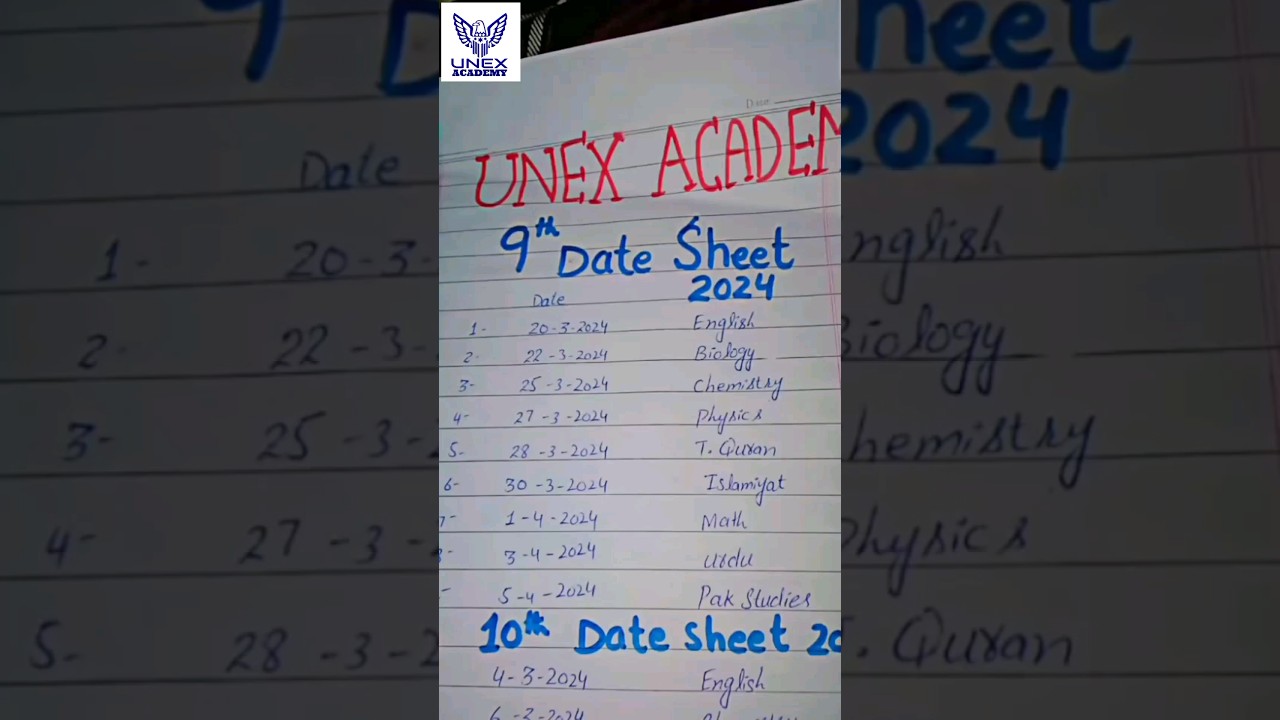 UNEX
ACADEMY
Date
UNEX ACADEM
9th Date Sheet
2024
Date
1- 20-3-2024 English
2- 22-3-2024 Biology
3- 25-3-2024 Chemistry
4- 27-3-2024 Physics
5- 28-3-2024 T. Quran
6- 30-3-2024 Islamiyat
7- 1-4-2024 Math
3-4-2024 Urdu
- 5-4-2024 Pak Studies
10th Date Sheet 20
4-3-2024 English